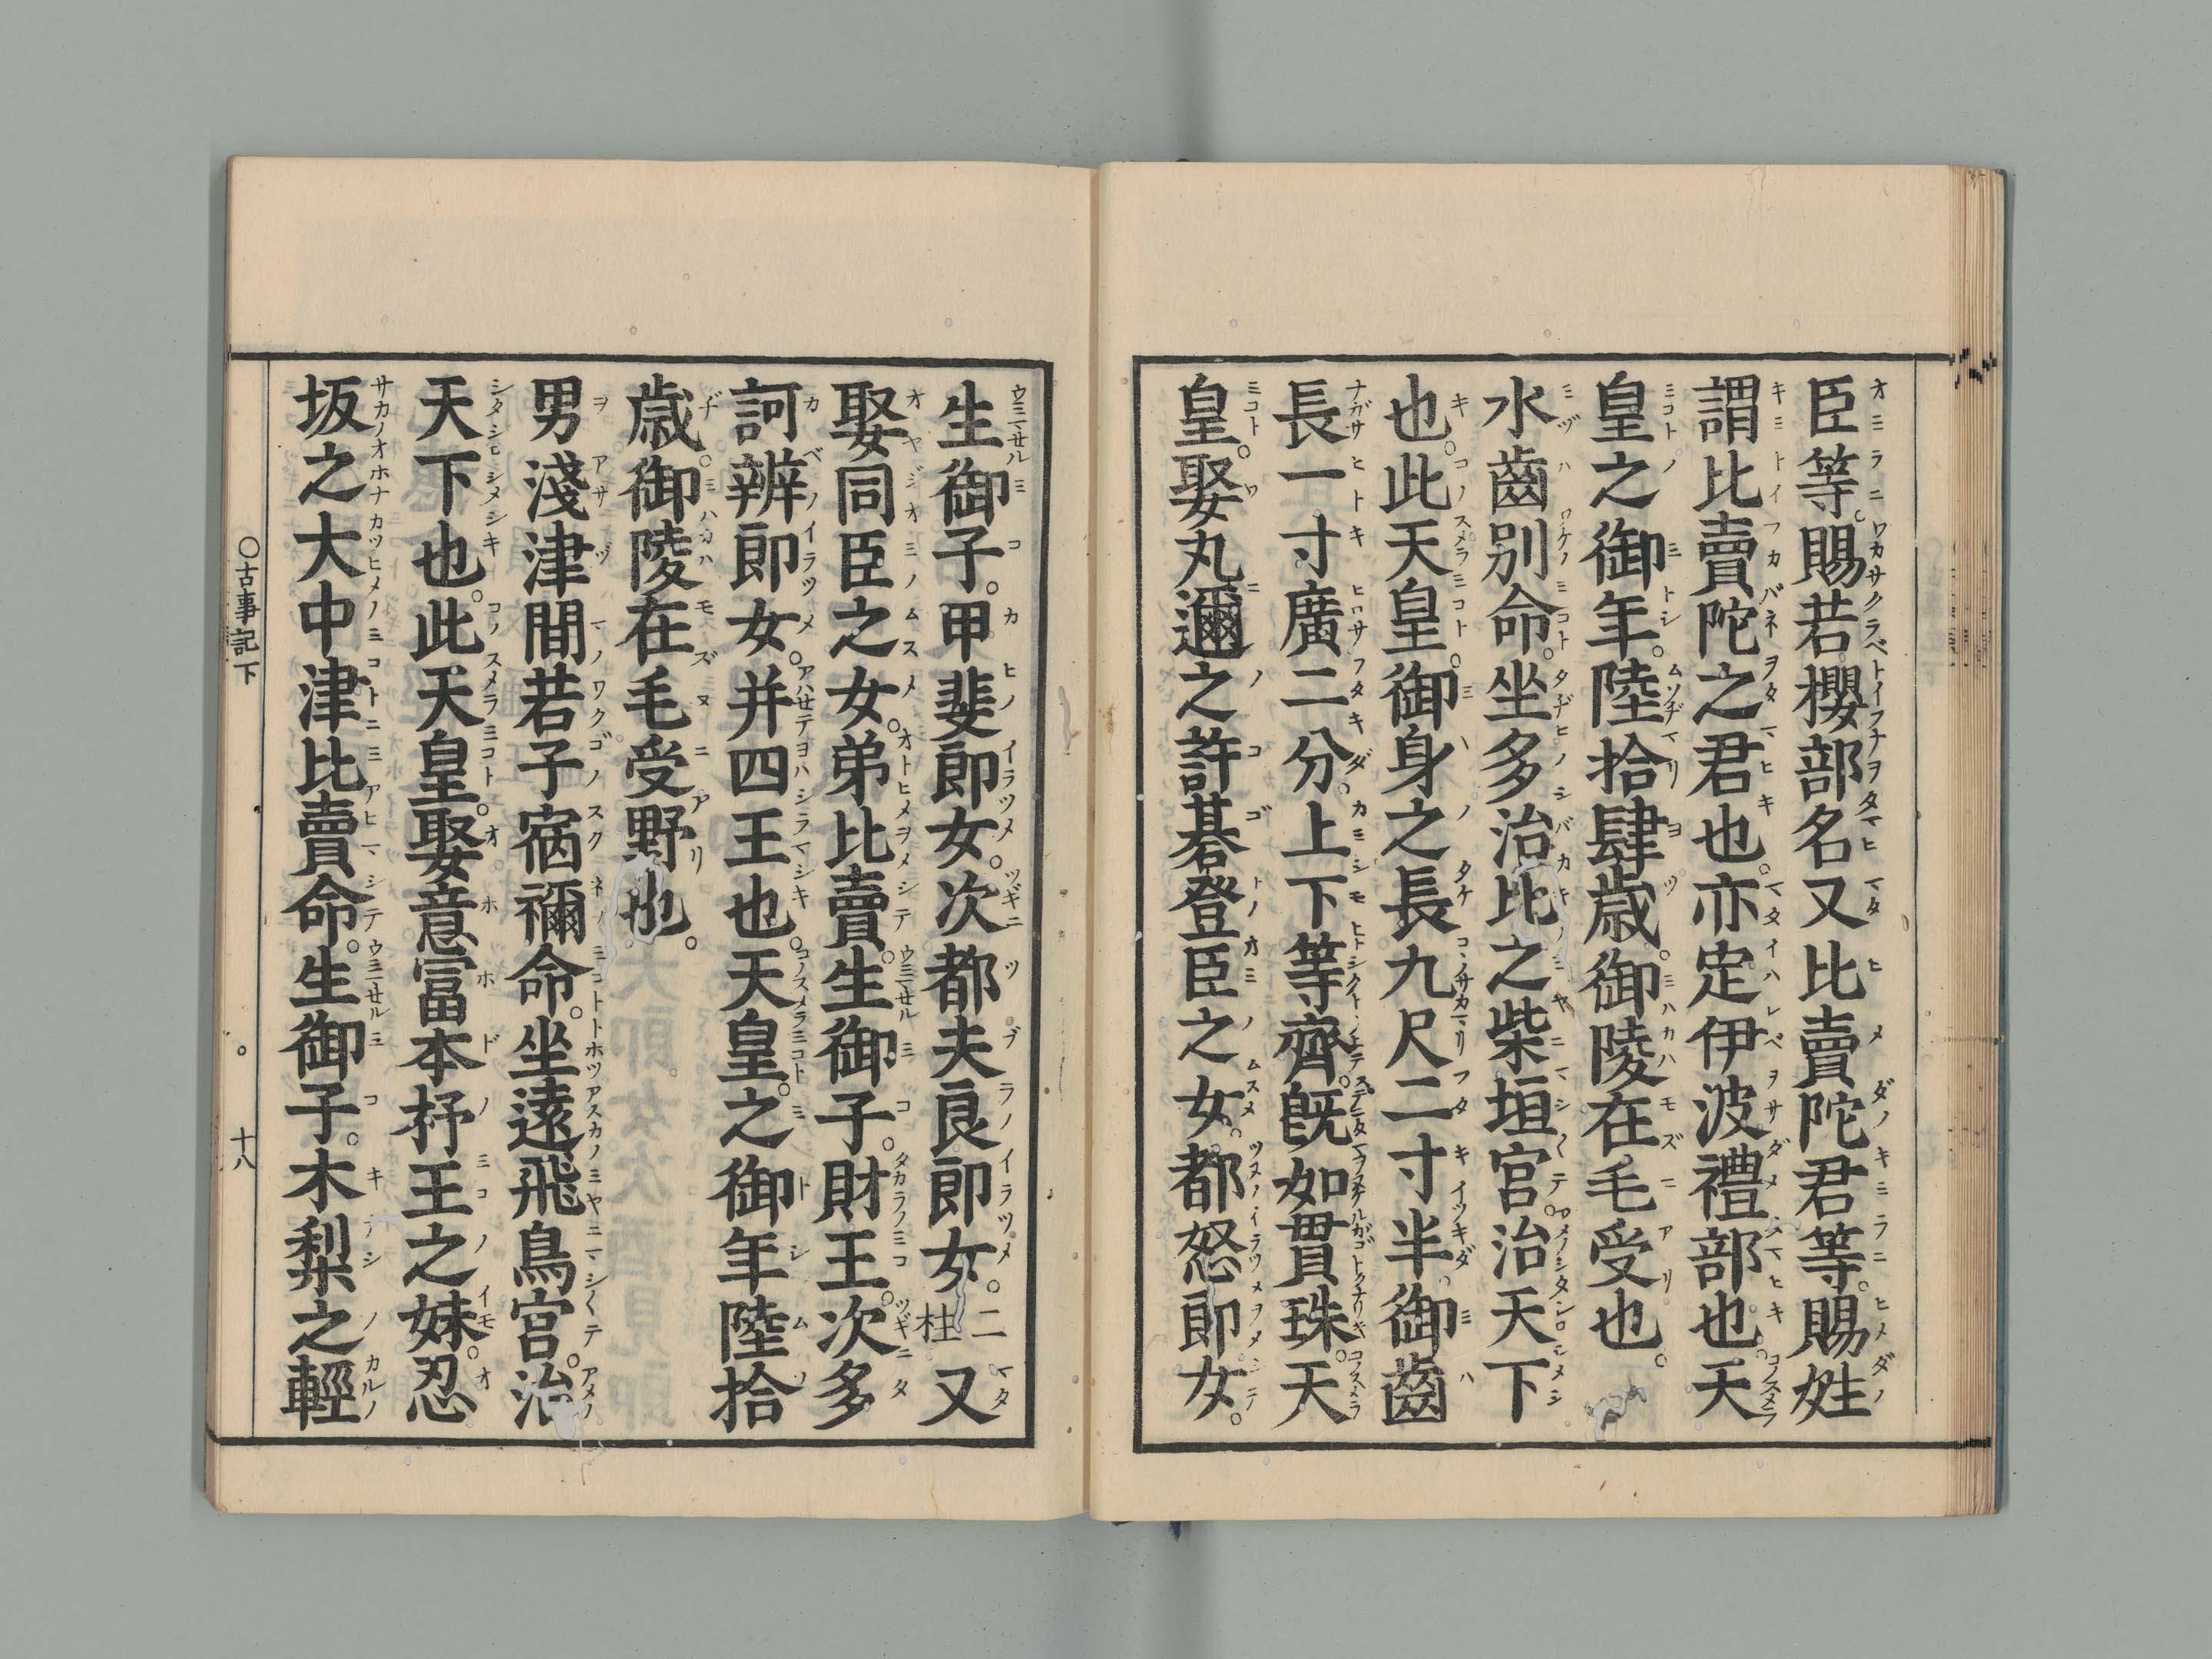 臣等。賜若櫻部名又比賣陀君等。賜姓
謂比賣陀之君也。亦定伊波禮部也。天
皇之御年。陸拾肆歳。御陵在毛受也。
水齒別命。坐多治比之柴垣宮。治天下
也。此天皇。御身之長九尺二寸半。御齒
長一寸廣二分。上下等齊。既如貫珠。天
皇。娶丸邇之許碁登臣之女。都怒郎女。
生御子。甲斐郎女。次都夫良郎女。二柱又
娶同臣之女。弟比賣。生御子。財王。次多
訶辨郎女。并四王也。天皇。之御年陸拾
歳。御陵在毛受野也。
男淺津間若子宿禰命。坐遠飛鳥宮。治
天下也。此天皇。娶意富本杼王之妹。忍
坂之大中津比賣命。生御子。木梨之輕
○古事記下 十八